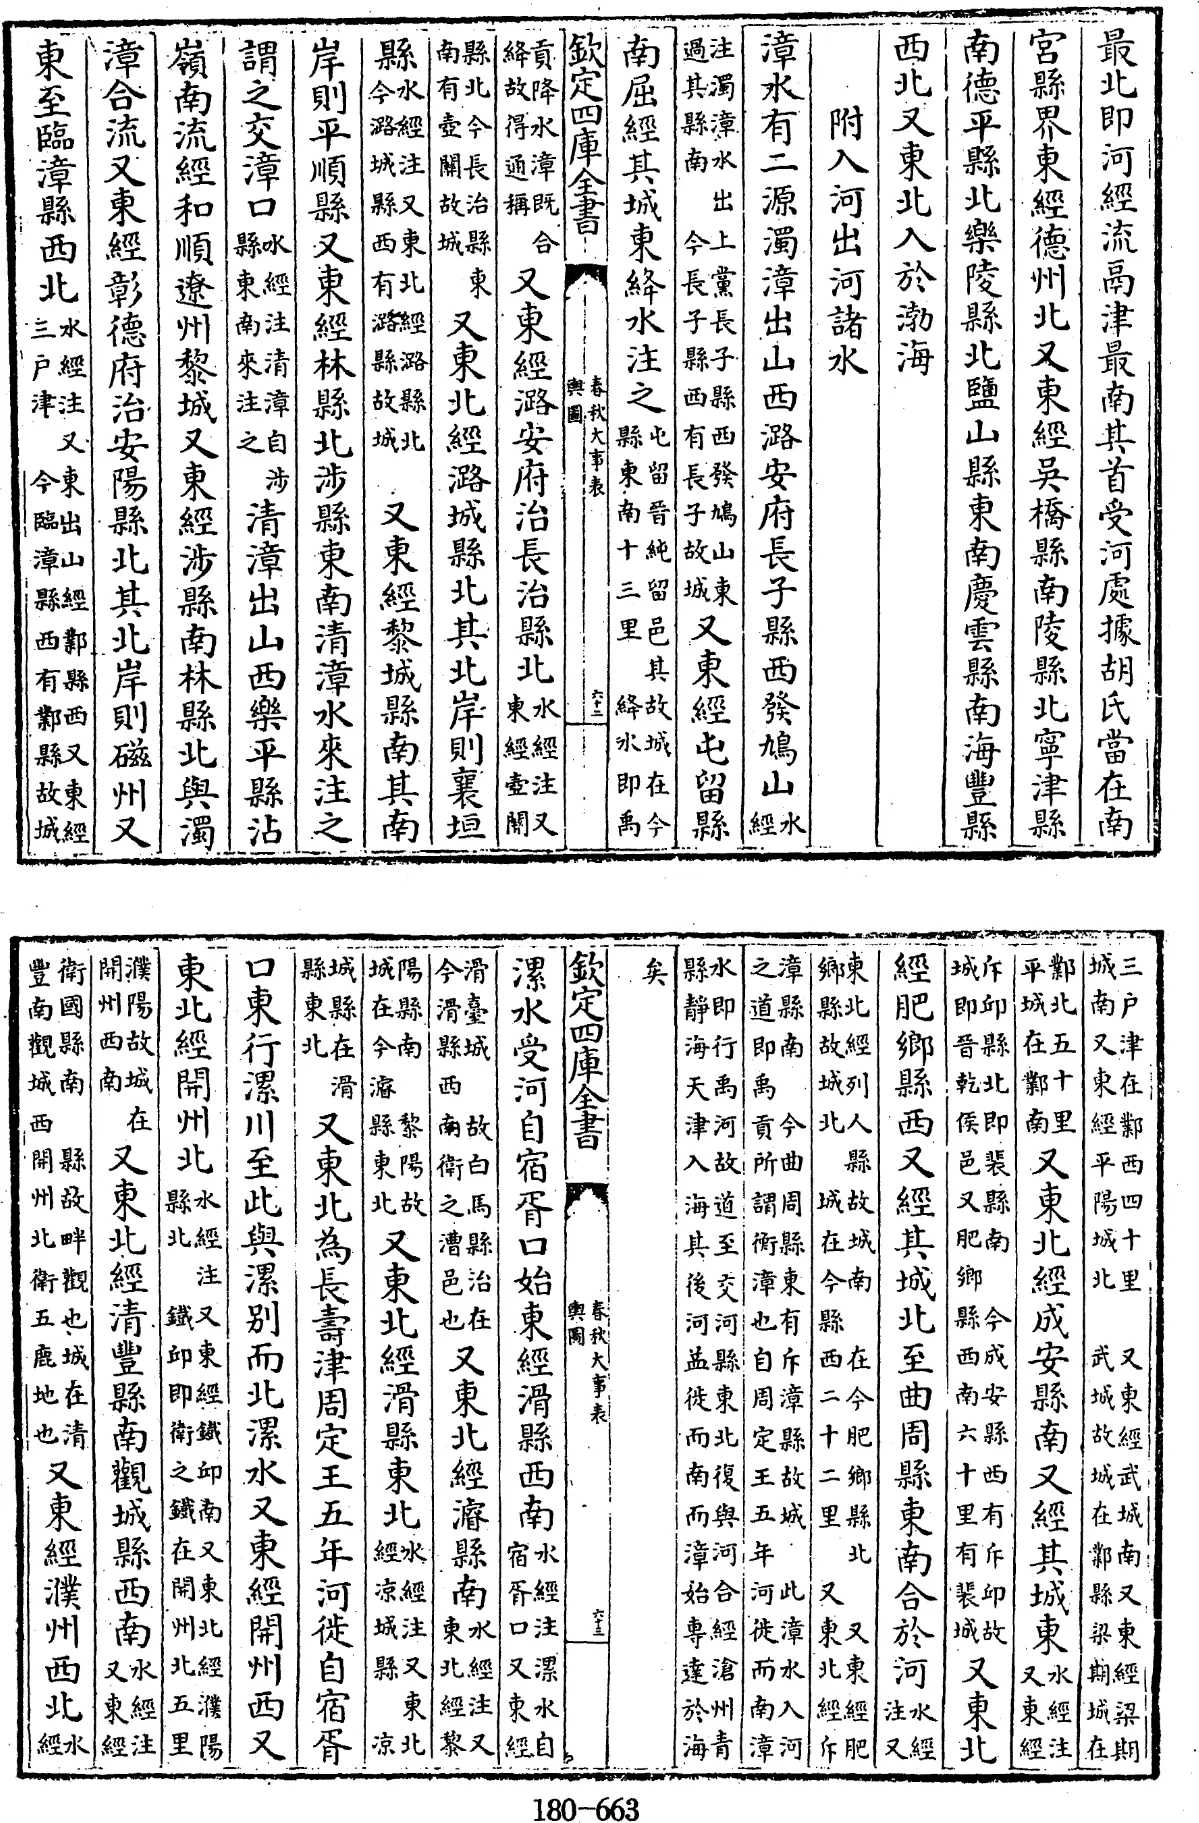 最北即河經流鬲津最南其首受河處據胡氏當在南
宮縣界東經德州北又東經吳橋縣南陵縣北寧津縣
南德平縣北樂陵縣北鹽山縣東南慶雲縣南海豐縣
西北又東北入於渤海
附入河出河諸水
漳水有二源濁漳出山西潞安府長子縣西發鳩山水經
注濁漳水出上黨長子縣西發鳩山東過其縣南 今長子縣西有長子故城又東經屯留縣
南屈經其城東絳水注之屯留晉純留邑其故城在今縣東南十三里 絳水即禹
欽定四庫全書 春秋大事表 輿圖 六十二
貢降水漳既合絳故得通稱又東經潞安府治長治縣北水經注又東經壺關
縣北今長治縣東南有壺關故城又東北經潞城縣北其北岸則襄垣
縣水經注又東北經潞縣北今潞城縣西有潞縣故城又東經黎城縣南其南
岸則平順縣又東經林縣北涉縣東南清漳水來注之
謂之交漳口水經注清漳自涉縣東南來注之清漳出山西樂平縣沾
嶺南流經和順遼州黎城又東經涉縣南林縣北與濁
漳合流又東經彰德府治安陽縣北其北岸則磁州又
東至臨漳縣西北水經注又東出山經鄴縣西又東經三戶津 今臨漳縣西有鄴縣故城
三戶津在鄴西四十里 又東經武城南又東經梁期城南又東經平陽城北 武城故城在鄴縣梁期城在
鄴北五十里平城在鄴南又東北經成安縣南又經其城東水經注又東經
斥邱縣北即裴縣南 今成安縣西有斥邱故城即晉乾侯邑又肥鄉縣西南六十里有裴城又東北
經肥鄉縣西又經其城北至曲周縣東南合於河水經注又
東北經列人縣故城南 在今肥鄉縣北 又東經肥鄉縣故城北 城在今縣西二十二里 又東北經斥
漳縣南 今曲周縣東有斥漳縣故城 此漳水入河之道即禹貢所謂衡漳也自周定王五年河徙而南漳
水即行禹河故道至交河縣東北復與河合經滄州青縣靜海天津入海其後河益徙而南而漳始專達於海
矣
欽定四庫全書 春秋大事表 輿圖 六十三
漯水受河自宿胥口始東經滑縣西南水經注漯水自宿胥口又東經
滑臺城 故白馬縣治在今滑縣西南衛之漕邑也又東北經濬縣南水經注又東北經黎
陽縣南 黎陽故城在今濬縣東北又東北經滑縣東北水經注又東北經涼城縣 涼
城縣在滑縣東北又東北為長壽津周定王五年河徙自宿胥
口東行漯川至此與漯別而北漯水又東經開州西又
東北經開州北水經注 又東經鐵邱南又東北經濮陽縣北 鐵邱即衛之鐵在開州北五里
濮陽故城在開州西南又東北經清豐縣南觀城縣西南水經注又東經
衛國縣南 縣故畔觀也城在清豐南觀城西 開州北衛五鹿地也又東經濮州西北水經
180-663